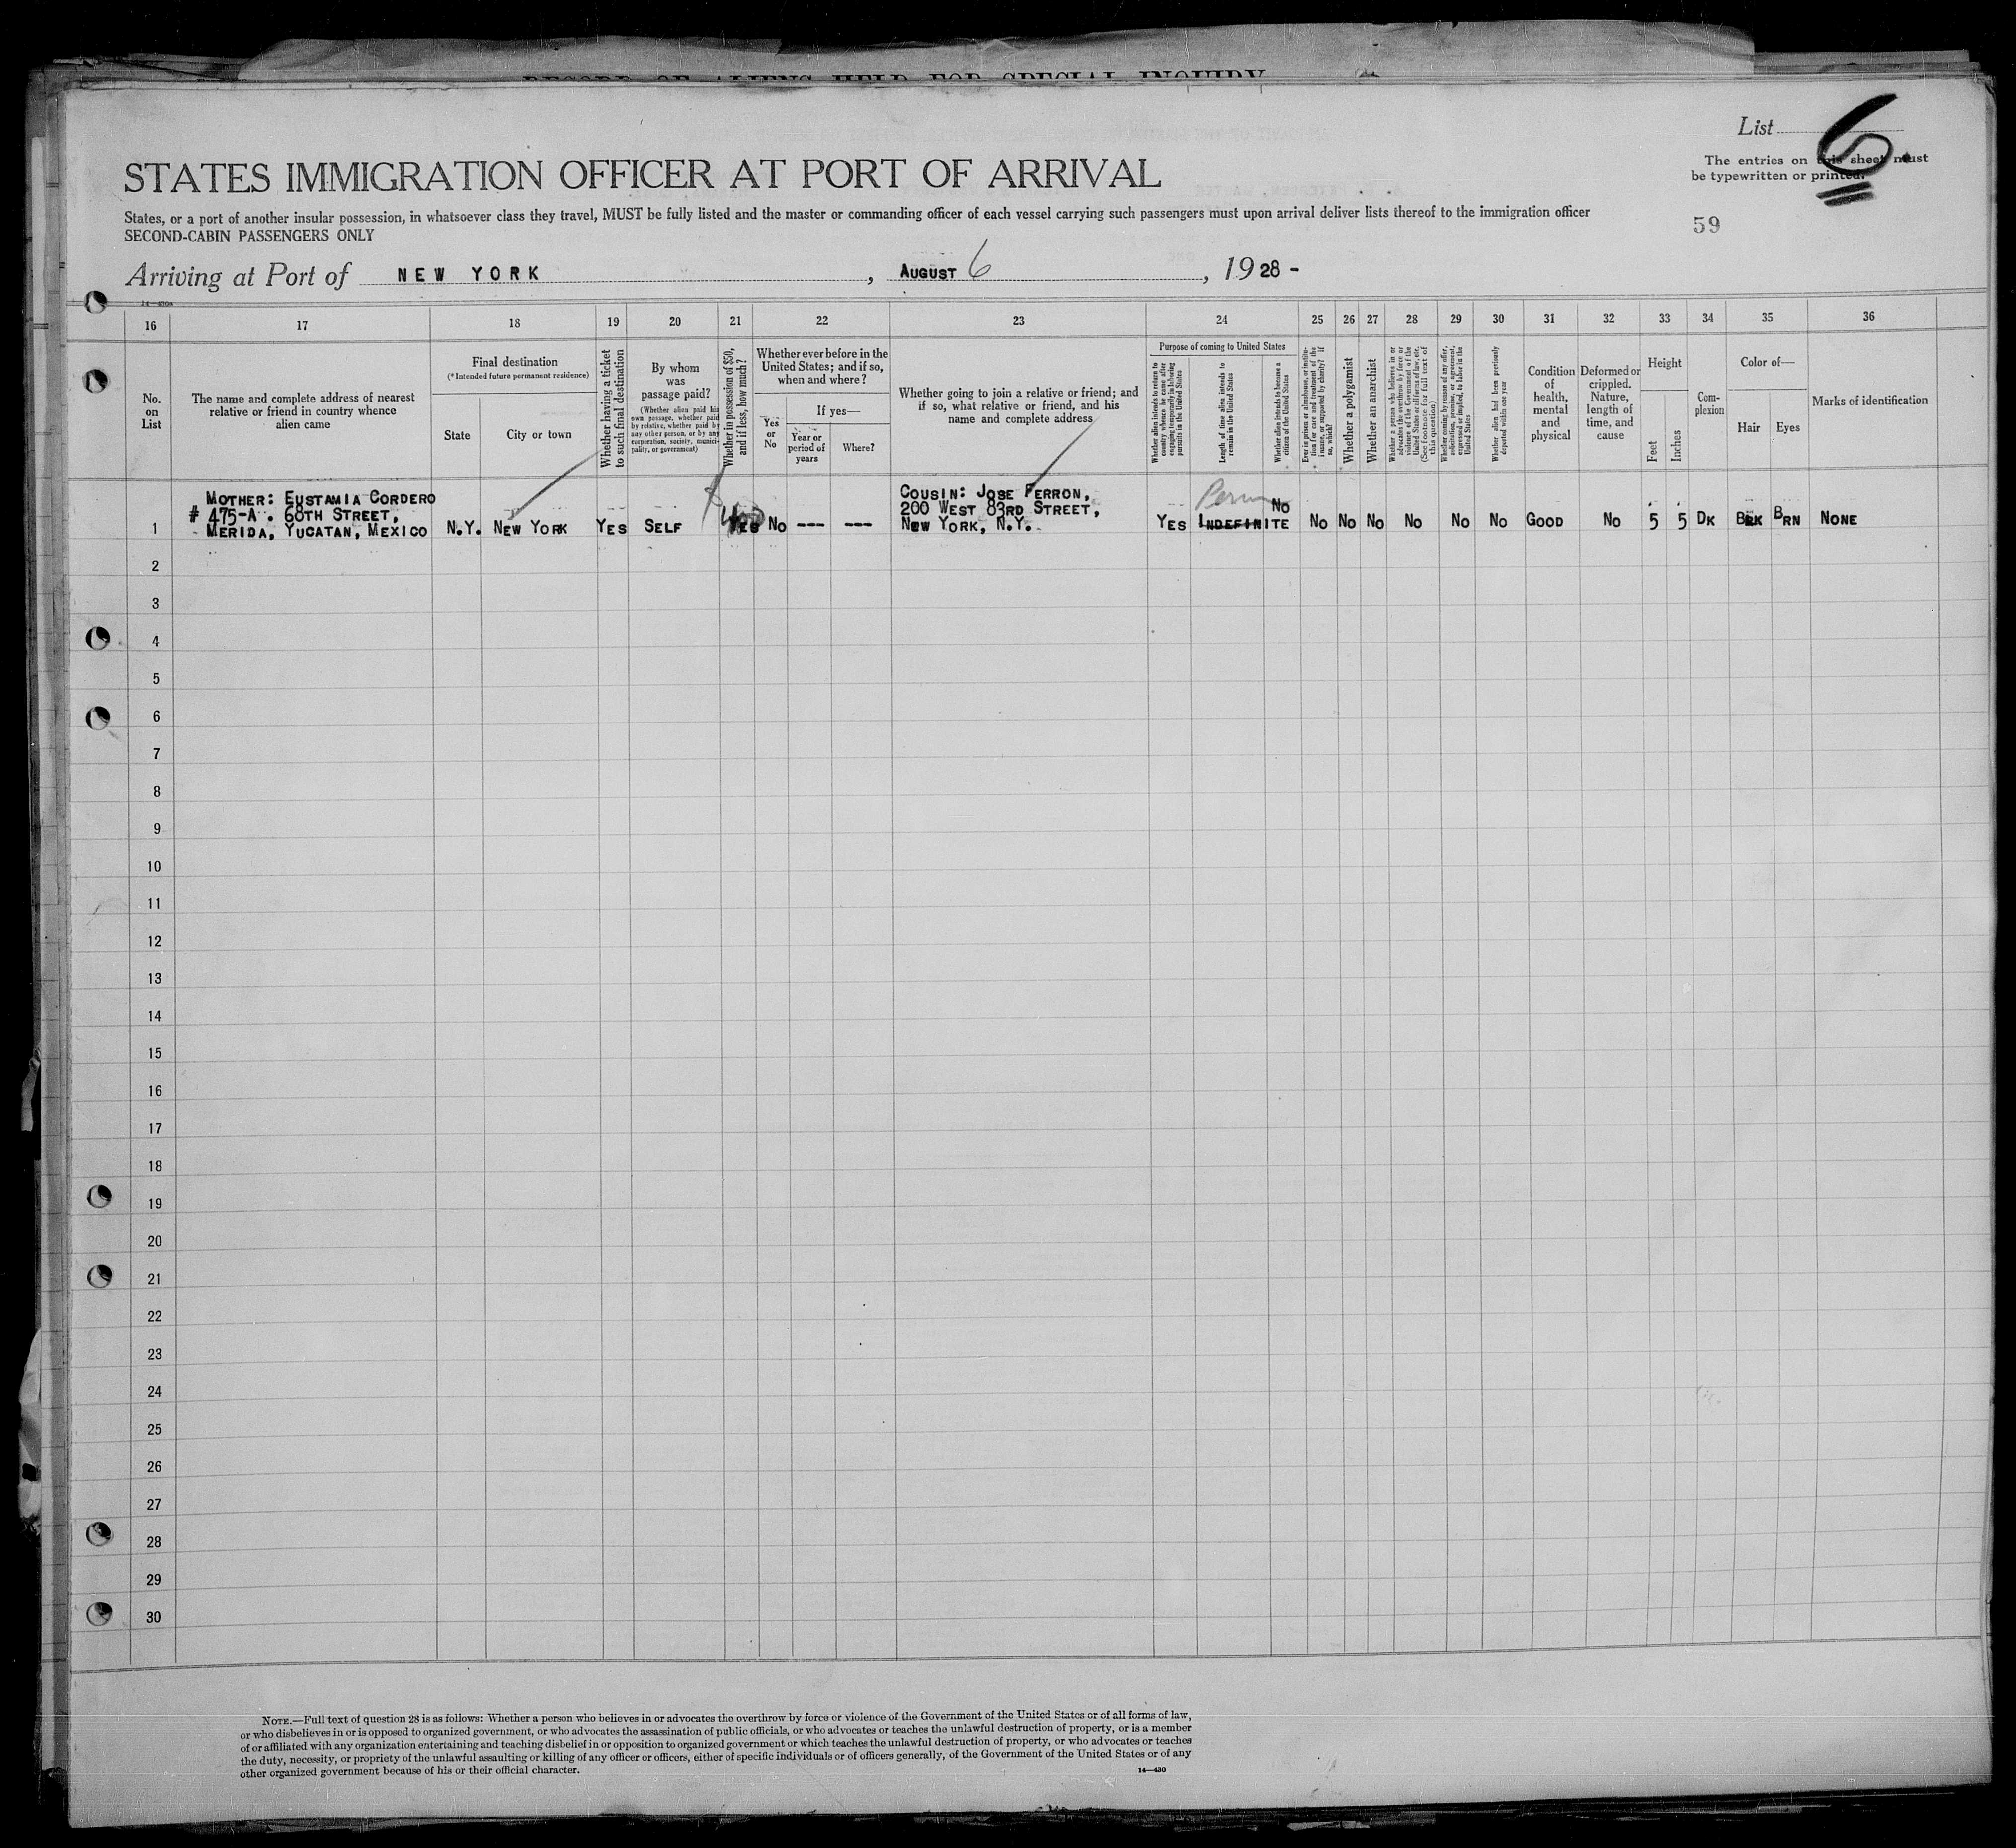 RECORD OF ALIENS HELD FOR SPECIAL INQUIRY
List 6.
The entries on this sheet must
be typewritten or printed.
STATES IMMIGRATION OFFICER AT PORT OF ARRIVAL
States, or a port of another insular possession, in whatsoever class they travel, MUST be fully listed and the master or commanding officer of each vessel carrying such passengers must upon arrival deliver lists thereof to the immigration officer
SECOND-CABIN PASSENGERS ONLY
59
Arriving at Port of NEW YORK, AUGUST 6, 1928-
14—430a
16 17 18 19 20 21 22 23 24 25 26 27 28 29 30 31 32 33 34 35 36
No.
on
List
The name and complete address of nearest
relative or friend in country whence
alien came
Final destination
(*Intended future permanent residence)
State
City or town
Whether having a ticket
to such final destination
By whom
was
passage paid?
(Whether alien paid his
own passage, whether paid
by relative, whether paid by
any other person, or by any
corporation, society, munici-
pality, or government)
Whether in possession of $50,
and if less, how much?
Whether ever before in the
United States; and if so,
when and where?
Yes
or
No
If yes—
Year or
period of
years
Where?
Whether going to join a relative or friend; and
if so, what relative or friend, and his
name and complete address
Purpose of coming to United States
Whether alien intends to return to
country whence he came after
engaging temporarily in laboring
pursuits in the United States
Length of time alien intends to
remain in the United States
Whether alien intends to become a
citizen of the United States
Ever in prison or almshouse, or institu-
tion for care and treatment of the
insane, or supported by charity? If
so, which?
Whether a polygamist
Whether an anarchist
Whether a person who believes in or
advocates the overthrow by force or
violence of the Government of the
United States or all forms of law, etc.
(See footnote for full text of
this question)
Whether coming by reason of any offer,
solicitation, promise, or agreement,
expressed or implied, to labor in the
United States
Whether alien had been previously
deported within one year
Condition
of
health,
mental
and
physical
Deformed or
crippled.
Nature,
length of
time, and
cause
Height
Feet
Inches
Com-
plexion
Color of—
Hair
Eyes
Marks of identification
MOTHER: EUSTAMIA CORDERO
# 475-A. 60TH STREET,
MERIDA, YUCATAN, MEXICO
COUSIN: JOSE FERRON,
200 WEST 83RD STREET,
NEW YORK, N.Y.
1 N.Y. NEW YORK YES SELF YES NO --- --- YES INDEFINITE NO NO NO NO NO NO NO GOOD NO 5 5 DK BLK BRN NONE
2
3
4
5
6
7
8
9
10
11
12
13
14
15
16
17
18
19
20
21
22
23
24
25
26
27
28
29
30
NOTE.—Full text of question 28 is as follows: Whether a person who believes in or advocates the overthrow by force or violence of the Government of the United States or of all forms of law,
or who disbelieves in or is opposed to organized government, or who advocates the assassination of public officials, or who advocates or teaches the unlawful destruction of property, or is a member
of or affiliated with any organization entertaining and teaching disbelief in or opposition to organized government or which teaches the unlawful destruction of property, or who advocates or teaches
the duty, necessity, or propriety of the unlawful assaulting or killing of any officer or officers, either of specific individuals or of officers generally, of the Government of the United States or of any
other organized government because of his or their official character.
14—430